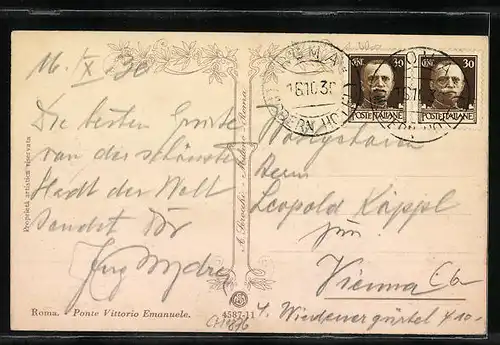 16./X 30
Die besten Grüße
von der schönsten
Stadt der Welt
sendet Dir
Proprietà artistica riservata
A. Scrocchi - Milano - Roma
ROMA
16.10.30
CENT 30
POSTE ITALIANE
CENT 30
POSTE ITALIANE
Herrn
Leopold Käppl
jun.
Vienna
4. Wiedenergürtel 4
Roma. Ponte Vittorio Emanuele.
4587-11